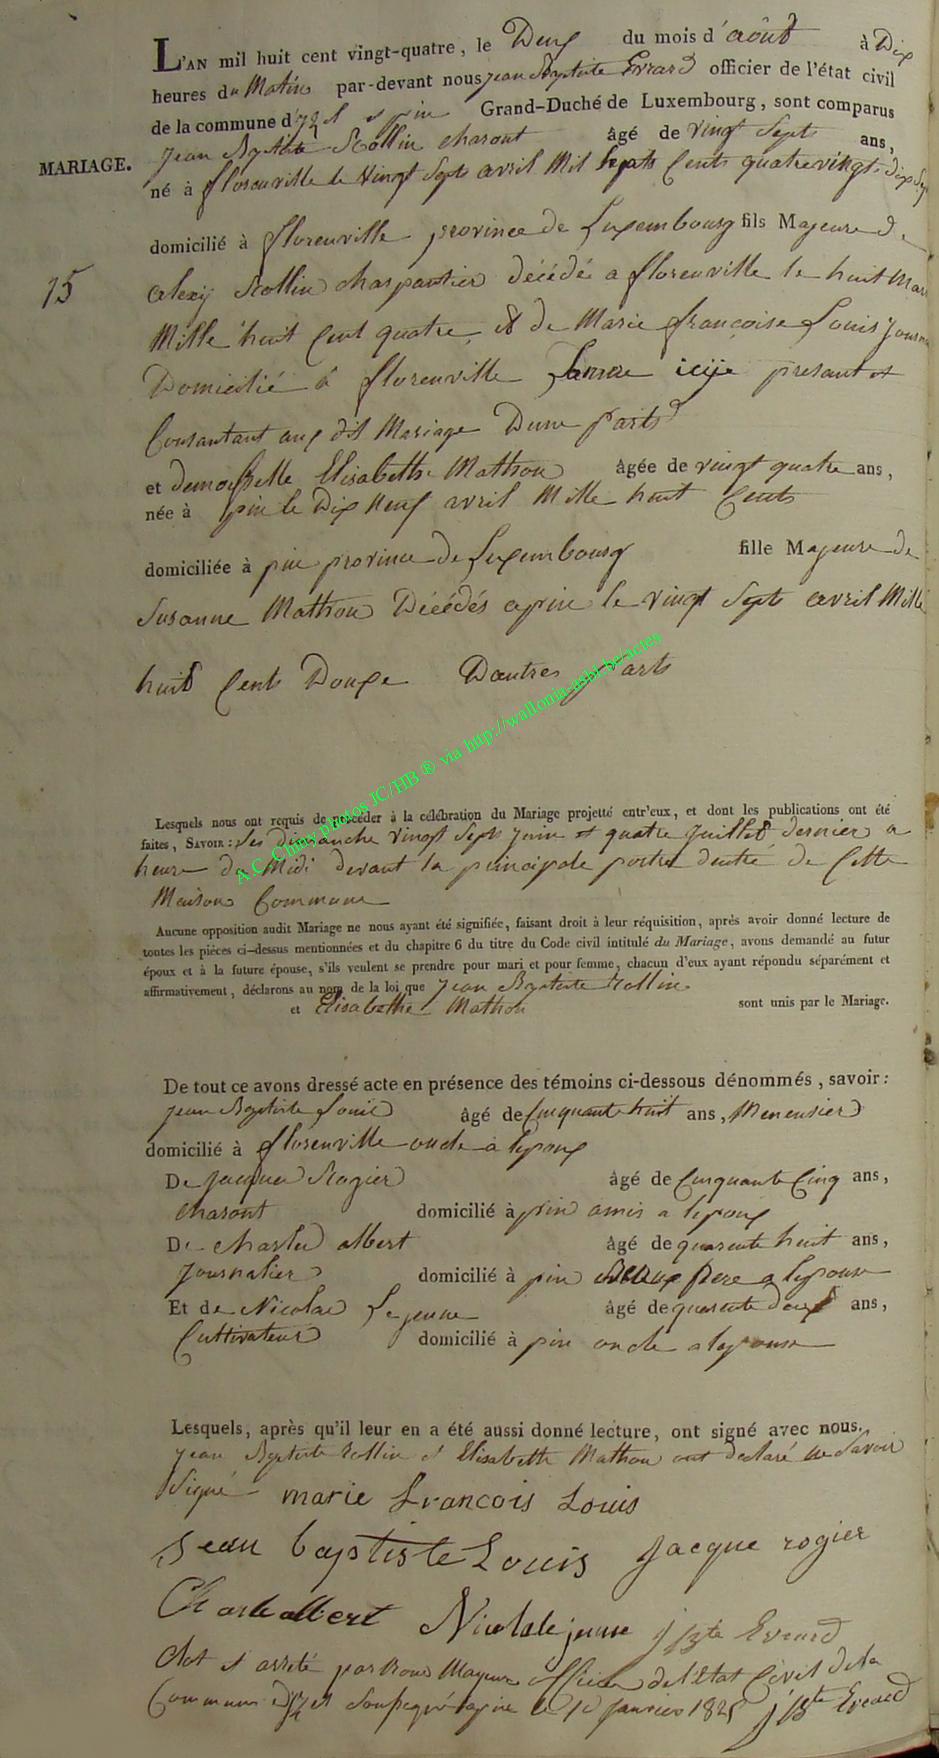 L'AN mil huit cent vingt-quatre, le Deux du mois d'août à Dix
heures du Matin par-devant nous jean Baptiste Evrard officier de l'état civil
de la commune d' Grand-Duché de Luxembourg, sont comparus
MARIAGE.
jean Baptiste Rollin charont âgé de vingt Sept ans,
né à florenville le Vingt Sept avril Mil Sept Cents quatrevingt dix Sept
domicilié à florenville province de Luxembourg fils Majeure de
15
alexij Rollin charpantier décédé a florenville le huit Mars
Mille huit Cent quatre et de Marie françoise Louis
Domicilié á florenville icije presant et
Consantant aux dit Mariage Dune part
et demoiselle Elisabethe Mathon âgée de vingt quatre ans,
née à pin le Dix Neuf avril Mille huit Cents
domiciliée à pin province de Luxembourg fille Majeure de
Susanne Mathon Décédés apin le vingt Sept avril Mille
huit Cents Douze Dautres parts
A.C. Chiny photos JC/HB ® via http://wallonia-asbl.be/actes
Lesquels nous ont requis de procéder à la célébration du Mariage projetté entr'eux, et dont les publications ont été
faites, SAVOIR: les dimanche vingt Sept juin et quatre juillet dernier a
heure du Midi devant la principale porte dentré de Cette
Maison Commune
Aucune opposition audit Mariage ne nous ayant été signifiée, faisant droit à leur réquisition, après avoir donné lecture de
toutes les pièces ci-dessus mentionnées et du chapitre 6 du titre du Code civil intitulé du Mariage, avons demandé au futur
époux et à la future épouse, s'ils veulent se prendre pour mari et pour femme, chacun d'eux ayant répondu séparément et
affirmativement, déclarons au nom de la loi que jean Baptiste Rollin
et Elisabethe Mathon sont unis par le Mariage.
De tout ce avons dressé acte en présence des témoins ci-dessous dénommés, savoir:
jean Baptiste Louis âgé de Cinquante huit ans, Meneusier
domicilié à florenville oncle a lepoux
De jacque Rogier âgé de Cinquante Cinq ans,
charont domicilié à pin amis a lepoux
De charle albert âgé de quarente huit ans,
journalier domicilié à pin Beaux frere a lepouse
Et de Nicolas Lejeune âgé de quarente deux ans,
Cultivateur domicilié à pin oncle a lepouse
Lesquels, après qu'il leur en a été aussi donné lecture, ont signé avec nous.
jean Baptiste Rollin et Elisabethe Mathon ont declaré ne Savoir
Signé marie francois Louis
jean baptiste Louis jacque rogier
Charle albert Nicolas lejeune j Bte Evrard
Clot et arreté par Nous Mayeur officier de l'Etat Civil de la
Commune le janvier 1825 j Bte Evrard